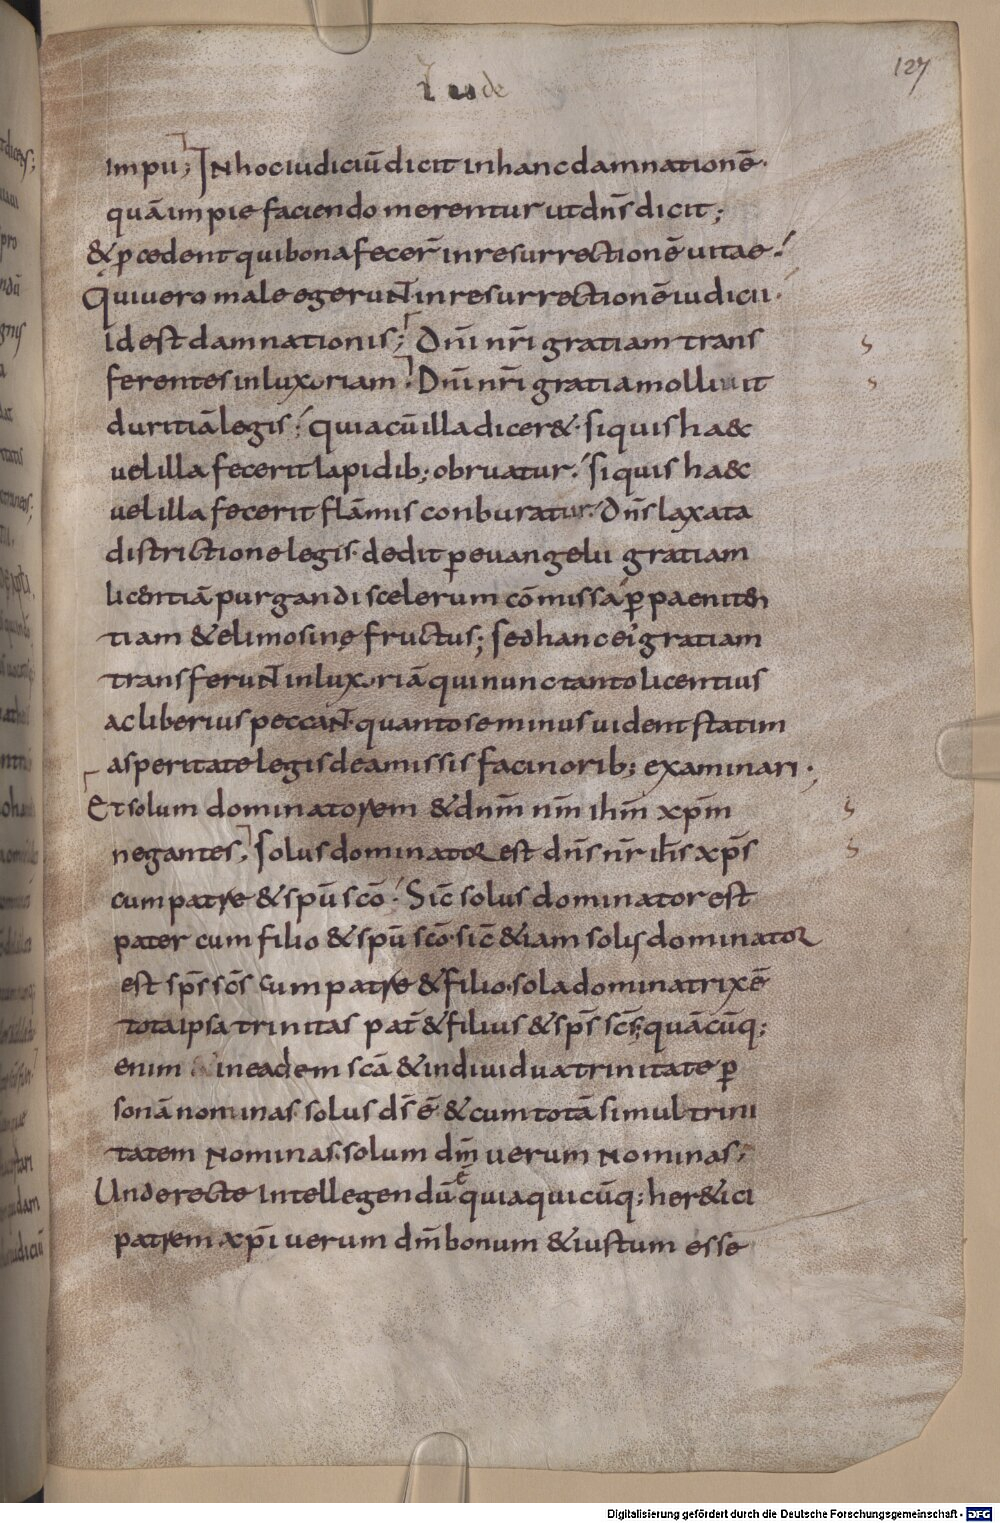 Iude
127
impii; In hoc iudiciū dicit in hanc damnationē·
quā impie faciendo merentur ut dn̄s dicit;
& p̱cedent qui bona fecer̄ in resurrectionē uitae·
Qui uero male egerunt in resurrectionē iudicii·
id est damnationis; Dn̄i nr̄i gratiam trans
ferentes in luxoriam· Dn̄i nr̄i gratia molliuit
duritiā legis; quia cū illa dicer&· si quis haec
uel illa fecerit lapidib; obruatur· Si quis haec
uel illa fecerit flāmis conburatur· Dn̄s laxata
districtione legis· dedit p̱ euangelii gratiam
licentiā purgandi scelerum cōmissa p̱ paeniten
tiam & elimosinę fructus; Sed hanc ei gratiam
transferunt in luxoriā qui nunc tanto licentius
ac liberius peccant· quanto se minus uident statim
asperitate legis de amissis facinorib; examinari·;
Et solum dominatorem & dnm̄ nm̄ ihm̄ xpm̄
negantes; Solus dominator est dn̄s nr̄ ih̄s xp̄s
cum patre & spū scō· Sic̄ solus dominator est
pater cum filio & spū scō· sic̄ &iam solus dominator
est sp̄s sc̄s cum patre & filio· sola dominatrix ē
tota ipsa trinitas pat̄ & filius & sp̄s sc̄s; quācūq;
enim in eadem scā & indiuidua trinitate p̱
sonā nominas· solus ds̄ ē & cum totā simul trini
tatem nominas· solum dm̄ uerum nominas;
Unde recte intellegendū ē quia quicūq; her&ici
patrem xpī uerum dm̄ bonum & iustum esse
Digitalisierung gefördert durch die Deutsche Forschungsgemeinschaft - DFG